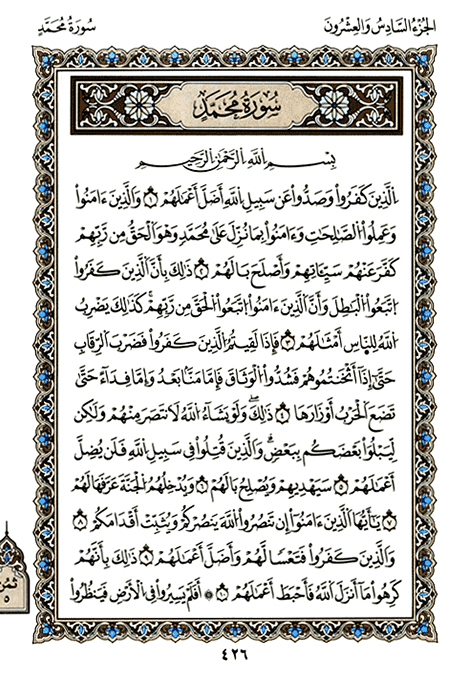 سُورَةُ مُحَمَّدٍ
الجُزْءُ السَّادِسُ وَالعِشْرُونَ
سُورَةُ مُحَمَّدٍ
بِسْمِ ٱللَّهِ ٱلرَّحْمَٰنِ ٱلرَّحِيمِ
ٱلَّذِينَ كَفَرُوا۟ وَصَدُّوا۟ عَن سَبِيلِ ٱللَّهِ أَضَلَّ أَعْمَٰلَهُمْ ١ وَٱلَّذِينَ ءَامَنُوا۟
وَعَمِلُوا۟ ٱلصَّٰلِحَٰتِ وَءَامَنُوا۟ بِمَا نُزِّلَ عَلَىٰ مُحَمَّدٍ وَهُوَ ٱلْحَقُّ مِن رَّبِّهِمْ
كَفَّرَ عَنْهُمْ سَيِّـَٔاتِهِمْ وَأَصْلَحَ بَالَهُمْ ٢ ذَٰلِكَ بِأَنَّ ٱلَّذِينَ كَفَرُوا۟
ٱتَّبَعُوا۟ ٱلْبَٰطِلَ وَأَنَّ ٱلَّذِينَ ءَامَنُوا۟ ٱتَّبَعُوا۟ ٱلْحَقَّ مِن رَّبِّهِمْ ۚ كَذَٰلِكَ يَضْرِبُ
ٱللَّهُ لِلنَّاسِ أَمْثَٰلَهُمْ ٣ فَإِذَا لَقِيتُمُ ٱلَّذِينَ كَفَرُوا۟ فَضَرْبَ ٱلرِّقَابِ
حَتَّىٰٓ إِذَآ أَثْخَنتُمُوهُمْ فَشُدُّوا۟ ٱلْوَثَاقَ فَإِمَّا مَنًّۢا بَعْدُ وَإِمَّا فِدَآءً حَتَّىٰ
تَضَعَ ٱلْحَرْبُ أَوْزَارَهَا ۚ ذَٰلِكَ وَلَوْ يَشَآءُ ٱللَّهُ لَٱنتَصَرَ مِنْهُمْ وَلَٰكِن
لِّيَبْلُوَا۟ بَعْضَكُم بِبَعْضٍ ۗ وَٱلَّذِينَ قُتِلُوا۟ فِى سَبِيلِ ٱللَّهِ فَلَن يُضِلَّ
أَعْمَٰلَهُمْ ٤ سَيَهْدِيهِمْ وَيُصْلِحُ بَالَهُمْ ٥ وَيُدْخِلُهُمُ ٱلْجَنَّةَ عَرَّفَهَا لَهُمْ
٦ يَٰٓأَيُّهَا ٱلَّذِينَ ءَامَنُوٓا۟ إِن تَنصُرُوا۟ ٱللَّهَ يَنصُرْكُمْ وَيُثَبِّتْ أَقْدَامَكُمْ ٧
وَٱلَّذِينَ كَفَرُوا۟ فَتَعْسًا لَّهُمْ وَأَضَلَّ أَعْمَٰلَهُمْ ٨ ذَٰلِكَ بِأَنَّهُمْ
كَرِهُوا۟ مَآ أَنزَلَ ٱللَّهُ فَأَحْبَطَ أَعْمَٰلَهُمْ ٩ ۞ أَفَلَمْ يَسِيرُوا۟ فِى ٱلْأَرْضِ فَيَنظُرُوا۟
٤٢٦